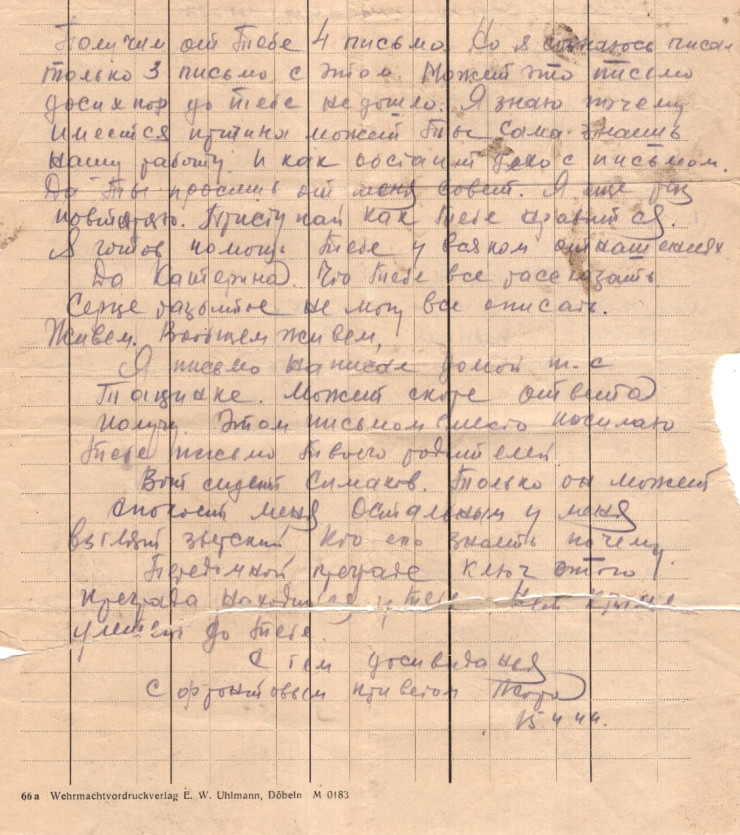 Получил от Тебе 4 письмо. Но я сознаюсь писал
только 3 письмо с этом. Может это письмо
досих пор до тебе не дошло. Я знаю почему
имеется притина может Ты сама знаешь
нашу работу. и как обстаит дело с письмом.
Да Ты просишь от меня совет. Я еще раз
повторяю. Приступай как тебе нравится.
Я готов помощь тебе у всяком отнашениях
Да Катерина. Что тебе все рассказать
Серце разбитое не могу все описать.
Живем. Вобщем живем,
Я письмо написал домой т-с
Тацинке. Может скоре ответа
получу. Этом письмом вместо посилаю
тебе письмо твоего родителей
Вот сидит Симаков. Только он может
спокоит меня остальным у меня
взгляд зверский кто его знаеть почему.
Передомной преграде ключ этого
преграда находится у тебе
до тебе.
С тем досвидания
С фронтовем приветом
15 4 44.
66 a Wehrmachtvordruckverlag E. W. Uhlmann, Döbeln M 0183